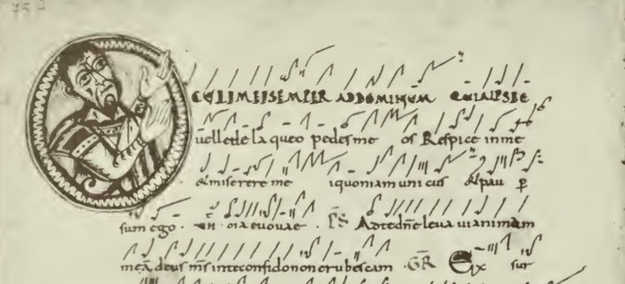 OCULI MEI SEMPER AD DOMINUM QUIA IPSE E
uellet de laqueo pedes me os Respice in me
& miserere me i quoniam unicus & pau p
sum ego . oia euouae . PS Ad te dne leuaui animam
meā deus ms in te confido non erubescam . GR Ex sur